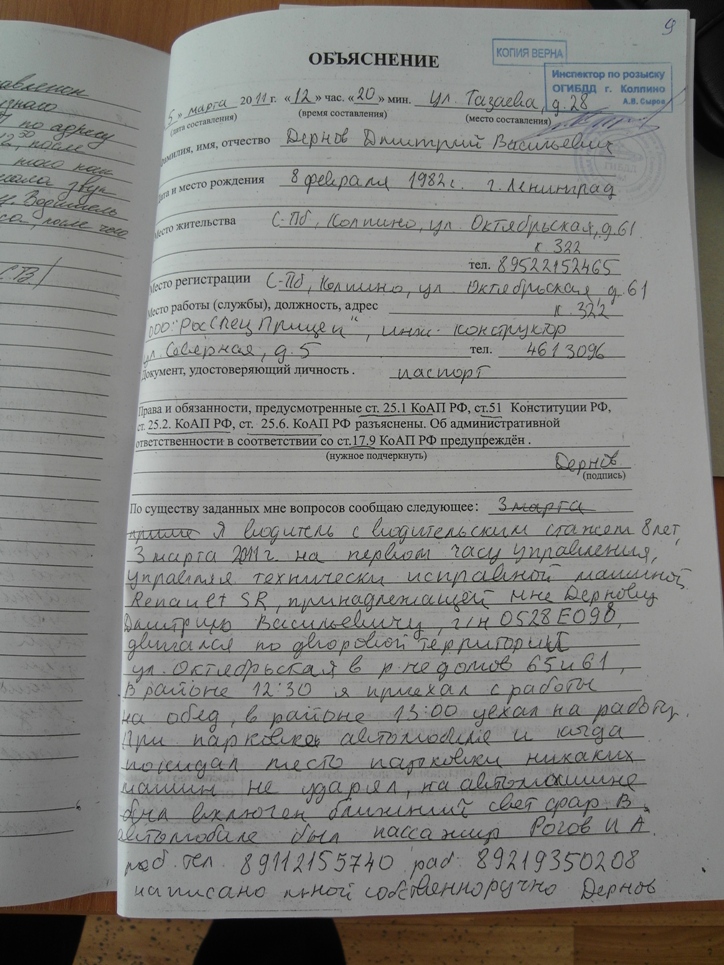 9
ОБЪЯСНЕНИЕ
КОПИЯ ВЕРНА
Инспектор по розыску
ОГИБДД г. Колпино
А.В. Сыров
5 » марта 2011 г. « 12 » час. « 20 » мин. ул. Тазаева, д. 28
(дата составления) (время составления) (место составления)
Фамилия, имя, отчество Дернов Дмитрий Васильевич
Дата и место рождения 8 февраля 1982 г. г. Ленинград
Место жительства С-Пб, Колпино, ул. Октябрьская, д. 61
к 322
тел. 89522152465
Место регистрации С-Пб, Колпино, ул. Октябрьская, д. 61
Место работы (службы), должность, адрес к. 322
ООО "РосСпецПрицеп", инж. конструктор
ул. Северная, д. 5 тел. 4613096
Документ, удостоверяющий личность . паспорт
Права и обязанности, предусмотренные ст. 25.1 КоАП РФ, ст.51 Конституции РФ,
ст. 25.2. КоАП РФ, ст. 25.6. КоАП РФ разъяснены. Об административной
ответственности в соответствии со ст.17.9 КоАП РФ предупреждён .
(нужное подчеркнуть)
Дернов
(подпись)
По существу заданных мне вопросов сообщаю следующее: 3 марта
Я водитель с водительским стажем 8 лет,
3 марта 2011 г. на первом часу управления,
управляя технически исправной машиной
Renault SR, принадлежащей мне Дернову
Дмитрию Васильевичу, г/н О528ЕО98,
двигался по дворовой территории
ул. Октябрьская в р-не домов 65 и 61,
В районе 12:30 я приехал с работы
на обед, в районе 13:00 уехал на работу.
При парковке автомобиля и когда
покидал место парковки никаких
машин не ударял, на автомашине
был включен ближний свет фар. В
автомобиле был пассажир Рогов И А.
моб. тел. 89112155740 раб. 89219350208
написано мной собственноручно Дернов
авлен
по адресу
после
Водитель
са, после чего